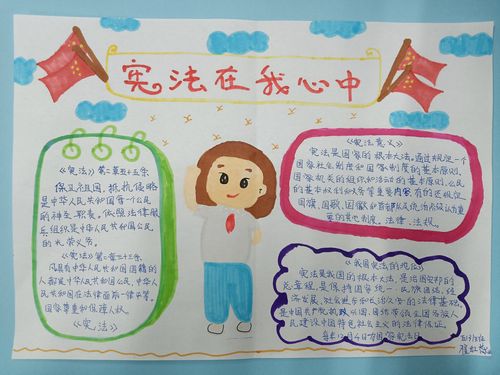 宪法在我心中
《宪法》第二章五十五条
保卫祖国、抵抗侵略
是中华人民共和国每一个公
民的神圣职责。依照法律服
兵役是中华人民共和国公民
的光荣义务。
《宪法》第二章三十三条
凡具有中华人民共和国国籍的
人都是中华人民共和国公民。中华人
民共和国在法律面前一律平等。
国家尊重和保障人权。
《宪法》
《宪法意义》
宪法是国家的根本大法，通过规定一个
国家社会制度和国家制度的基本原则，
国家机关的组织和活动的基本原则，公民
的基本权利和义务等重要内容，有的还规定
国旗、国歌、国徽和首都以及统治者认为重
要的其他制度、法律、法权。
《我国宪法的地位》
宪法是我国的根本大法，是治国安邦的
总章程，是保持国家统一、民族团结、经
济发展、社会进步和长治久安的法律基础，
是中国共产党执政兴国、团结带领全国各族人
民建设中国特色社会主义的法律保证。
每年12月4日为国家宪法日